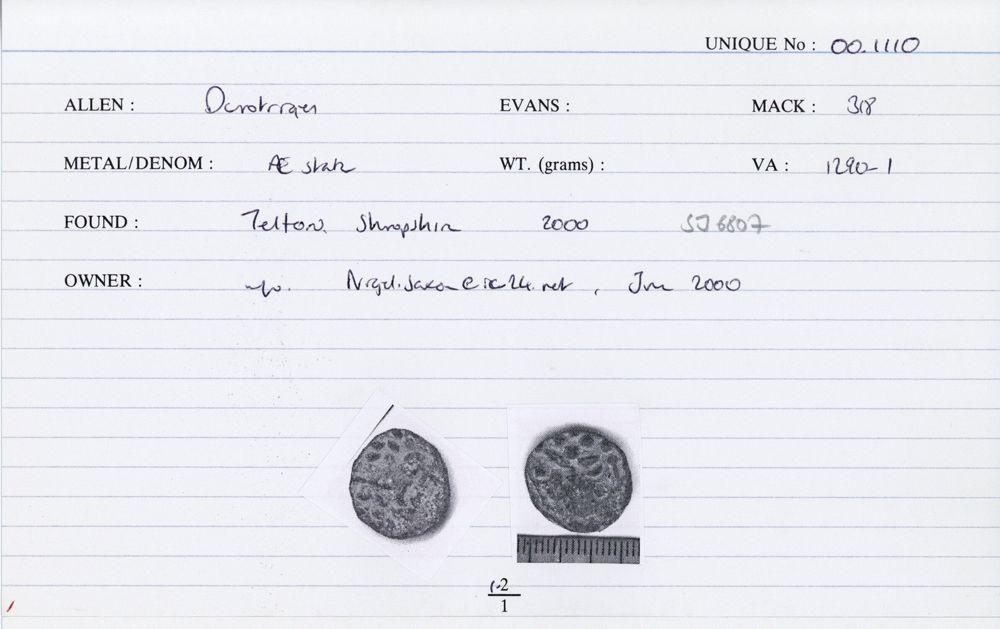 UNIQUE No : 00.1110
ALLEN : Durotriges EVANS : MACK : 318
METAL/DENOM : Æ stater WT. (grams) : VA : 1290-1
FOUND : Telford, Shropshire 2000 SJ 6807
OWNER : , June 2000
1.2
1